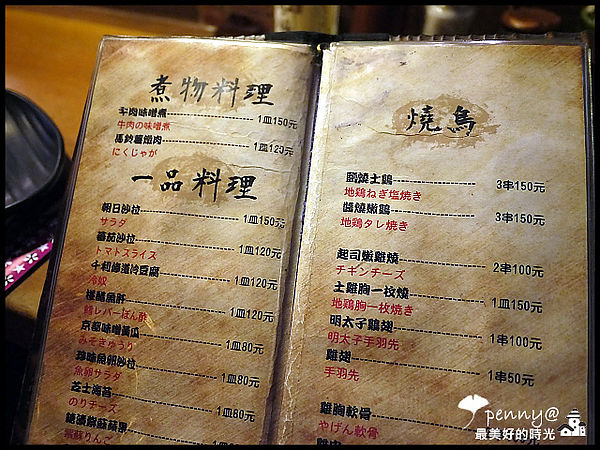 煮物料理
牛肉味噌煮 1皿150元
牛肉の味噌煮
馬鈴薯燉肉 1皿120元
にくじゃが
一品料理
朝日沙拉 1皿150元
サラダ
蕃茄沙拉 1皿120元
トマトスライス
千利修道冷豆腐 1皿120元
冷奴
1皿120元
鱈レバーぽん酢
京都味噌黃瓜 1皿80元
みそきゅうり
珍味魚卵沙拉 1皿80元
魚卵サラダ
芝士海苔 1皿80元
のりチーズ
紫蘇りんご
燒鳥
鹽燒土鷄 3串150元
地鶏ねぎ塩焼き
醬燒嫩鷄 3串150元
地鶏タレ焼き
起司嫩雞燒 2串100元
チキンチーズ
土雞胸一枚燒 1皿150元
地鶏胸一枚焼き
明太子鷄翅 1串100元
明太子手羽先
雞翅 1串50元
手羽先
雞胸軟骨
やげん軟骨
penny@
最美好的時光